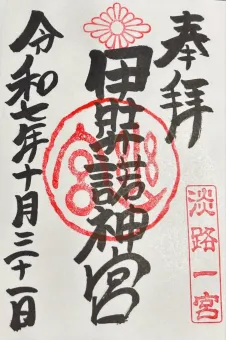 奉拝
淡路一宮
伊弉諾神宮
令和七年十月三十一日